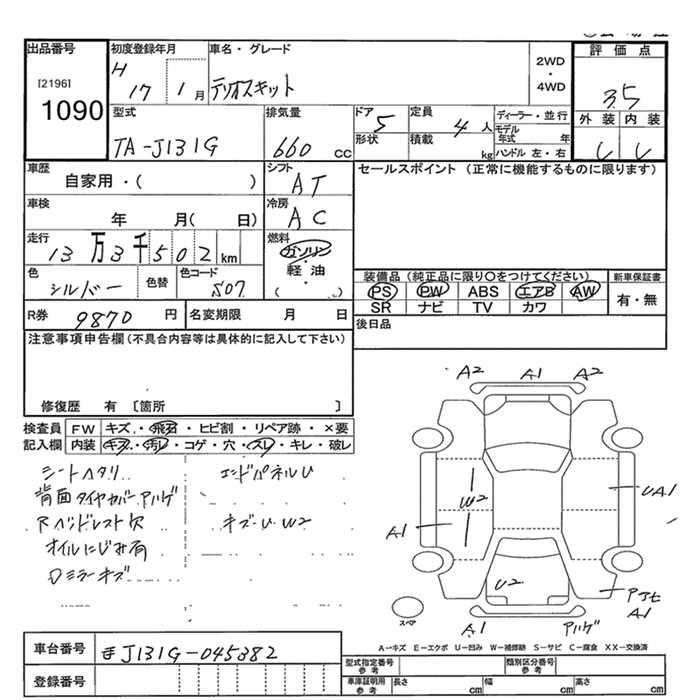 出品番号 初度登録年月 車名・グレード 2WD・4WD 評価点
[2196]
1090
H 17 1月 テリオスキット 3.5
型式 排気量 ドア 定員 ディーラー・並行 外装 内装
TA-J131G 660 CC 5 4人 モデル年式 年
形状 積載 kg ハンドル 左・右
車歴 自家用・( ) シフト AT セールスポイント(正常に機能するものに限ります)
車検 年 月( 日) 冷房 AC
走行 13万3千502km 燃料 ガソリン・軽油・( )
色 シルバー 色替 色コード S07
装備品(純正品に限り○をつけてください) 新車保証書
PS PW ABS エアB AW 有・無
SR ナビ TV カワ
R券 9870円 名変期限 月 日 後日品
注意事項申告欄(不具合内容等は具体的に記入して下さい)
修復歴 有 〔箇所 〕
検査員記入欄 FW キズ・飛石・ヒビ割・リペア跡・×要
内装 キズ・汚レ・コゲ・穴・スレ・キレ・破レ
シートヘタリ エンドパネルU
背面タイヤカバーアハゲ
Rヘッドレスト欠 キズ・U・W2
オイルにじみ有
Dミラーキズ
A2 A1 A2
W2 UA1
A1
U2
A1
スペア アハゲ
A-キズ E-エクボ U-凹み W-補修跡 S-サビ C-腐食 XX-交換済
車台番号 J131G-045382
登録番号
型式指定番号 参考 類別区分番号 参考
車庫証明用 参考 長さ cm 幅 cm 高さ cm